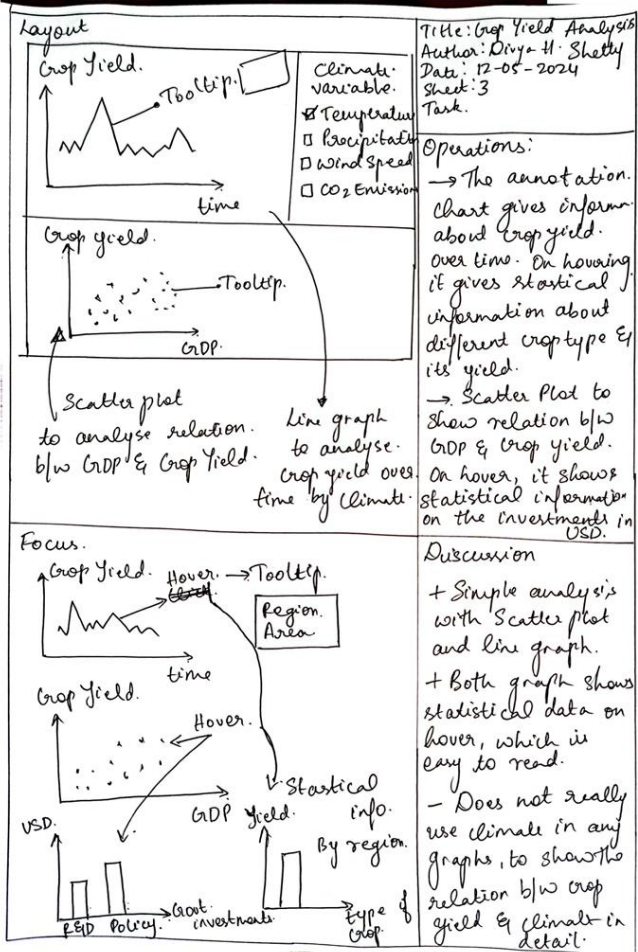 Layout
Crop Yield.
Tooltip.
time
Climate
variable.
Temperature
Precipitation
Wind Speed
CO2 Emission
Crop Yield.
Tooltip.
GDP.
Scatter plot
to analyse relation.
b/w GDP & Crop Yield.
Line graph
to analyse.
Crop yield over
time by Climate.
Title: Crop Yield Analysis
Author: Divya H. Shetty
Date: 12-05-2024
Sheet: 3
Task.
Operations:
→ The annotation.
Chart gives inform
about crop yield.
over time. On hovering
it gives stastical
information about
different crop type &
its yield.
→. Scatter Plot to
show relation b/w
GDP & Crop Yield.
On hover, it shows
statistical information
on the investments in
USD.
Focus.
Crop Yield.
Hover. → Tooltip.
Region.
Area
time
Crop Yield.
Hover.
GDP
Stastical
info.
By region.
USD.
R&D Policy.
Govt.
investments
Yield.
type of
Crop.
Discussion
+ Simple analysis
with Scatter plot
and line graph.
+ Both graph shows
statistical data on
hover, which is
easy to read.
- Does not really
use climate in any
graphs, to show the
relation b/w crop
yield & climate in
detail.